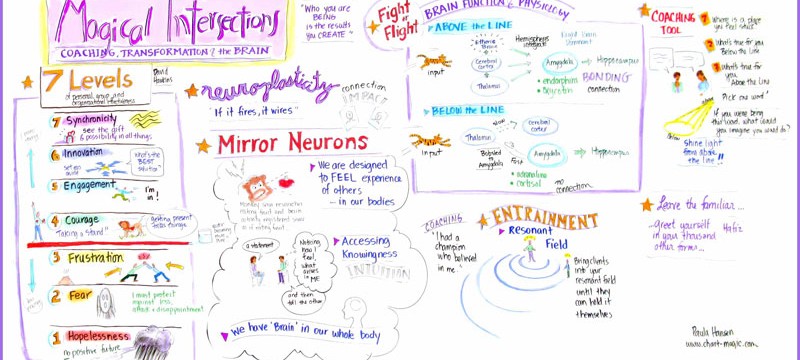 Magical Intersections
COACHING, TRANSFORMATION & the BRAIN
"Who you are
BEING
is the results
you CREATE"
7 Levels
of personal, group and
organizational effectiveness
David
Hawkins
7 Synchronicity
see the gift
& possibility in all things
6 Innovation
what's the
solution
5 Engagement
I'm in!
4 Courage
"Taking a Stand"
getting present
to as things
3 Frustration
2 Fear
I must protect
against loss,
attack + disappointment
1 Hopelessness
no positive future
neuroplasticity
"If it fires, it wires."
connection
IMPACT
Mirror Neurons
We are designed
to FEEL experience
of others
- in our bodies
a statement
Noticing
how I
feel,
what
arises
in ME
and then
tell the other
Accessing
Knowingness
INTUITION
We have 'Brain' in our whole body
Fight
or
Flight
BRAIN FUNCTION & PHYSIOLOGY
ABOVE the LINE
input
Cerebral
cortex
Thalamus
Hemispheres
integrate
Amygdala
Hippocampus
endorphins
oxycotin
BONDING
connection
BELOW the LINE
input
Thalamus
Slow
Cerebral
cortex
Fast
Amygdala
Hippocampus
adrenaline
cortisol
no
connection
COACHING
"I had a
champion
who believed
in me."
ENTRAINMENT
Resonant
Field
Bring clients
into your
resonant field
until they
can hold it
themselves
COACHING
TOOL
Where is a place
you feel stuck?
2 What's true for you
Below the Line
3 What's true for
you
Above the Line
Pick one word
If you were being
that word, what would
you imagine you would do?
Shine light
from Above
the line!!
Leave the familiar...
...Greet yourself
in your thousand
other forms...
Hafiz
Paula Hansen
www.chart-magic.com